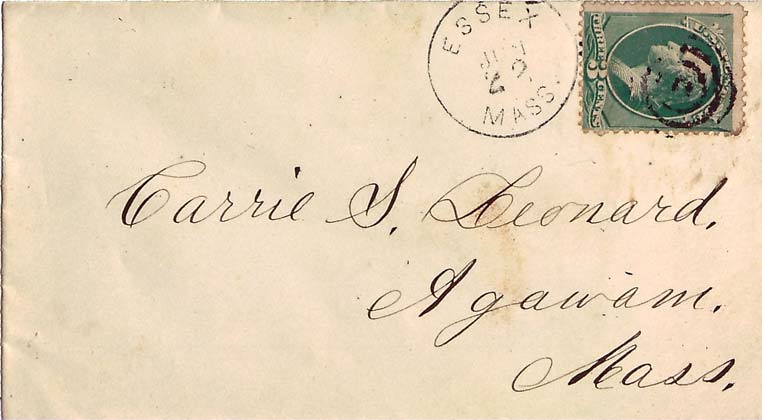 ESSEX
MASS.
Carrie S. Leonard.
Agawam.
Mass.